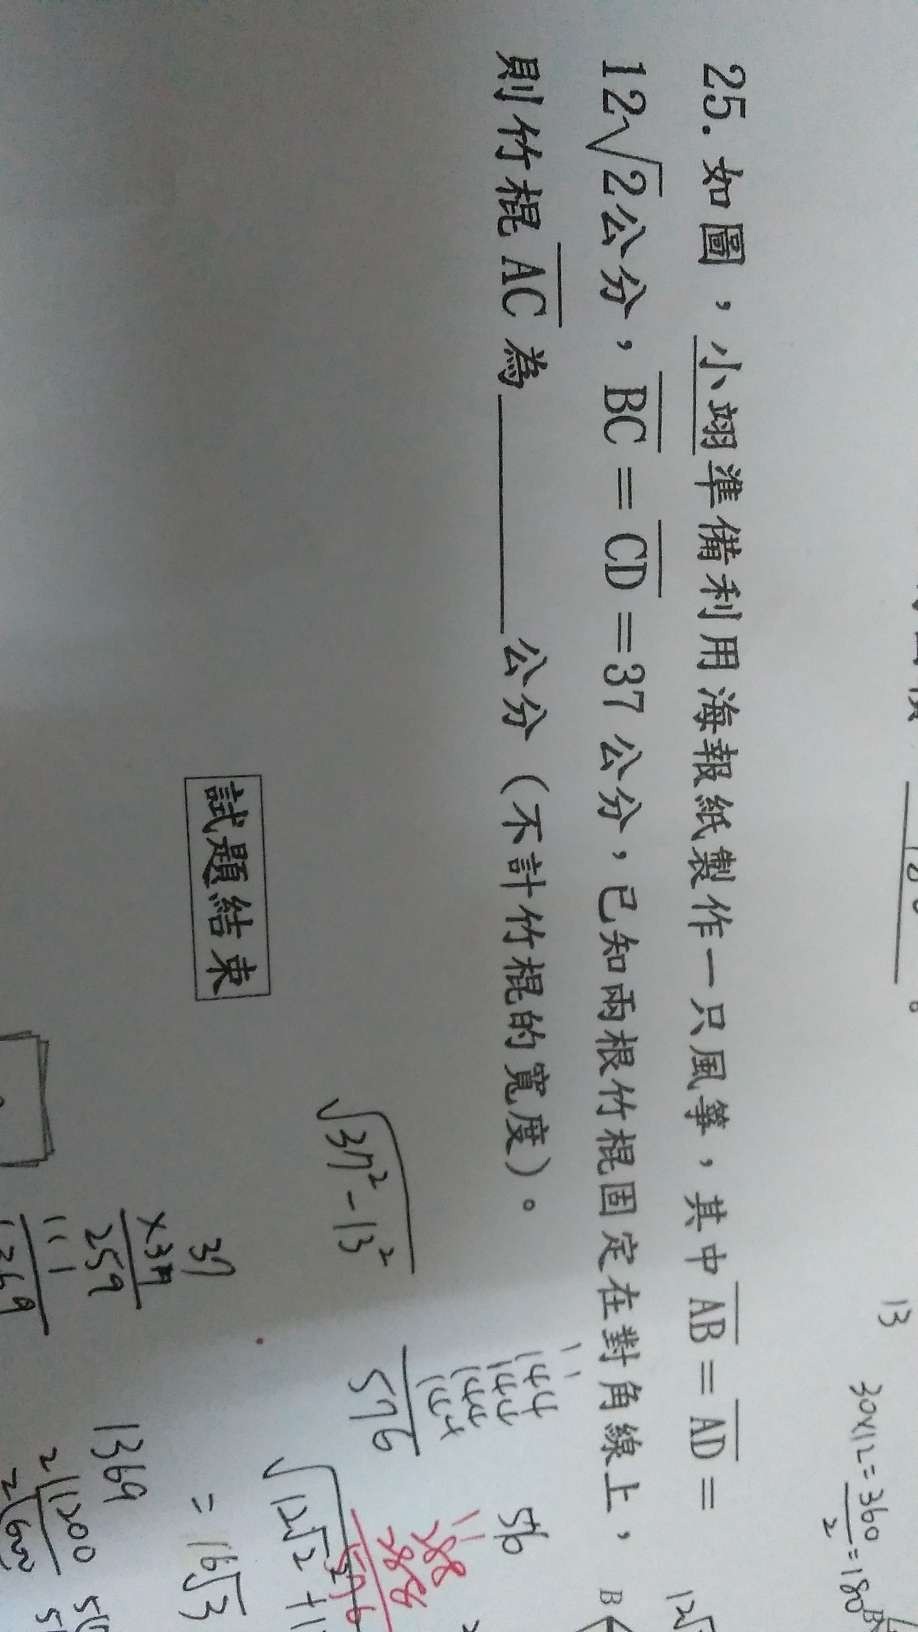 25. 如圖，小翊準備利用海報紙製作一只風箏，其中 AB = AD =
12√2公分，BC = CD =37 公分，已知兩根竹棍固定在對角線上，
則竹棍 AC 為________公分（不計竹棍的寬度）。
試題結束
13
30x12=360
2
=180
B
B
12√
√37²-13²
11
144
144
144
144
576
576
11
288
288
576
√12√2
= 16√3
37
x37
259
111
1369
1369
2 1200
2 600